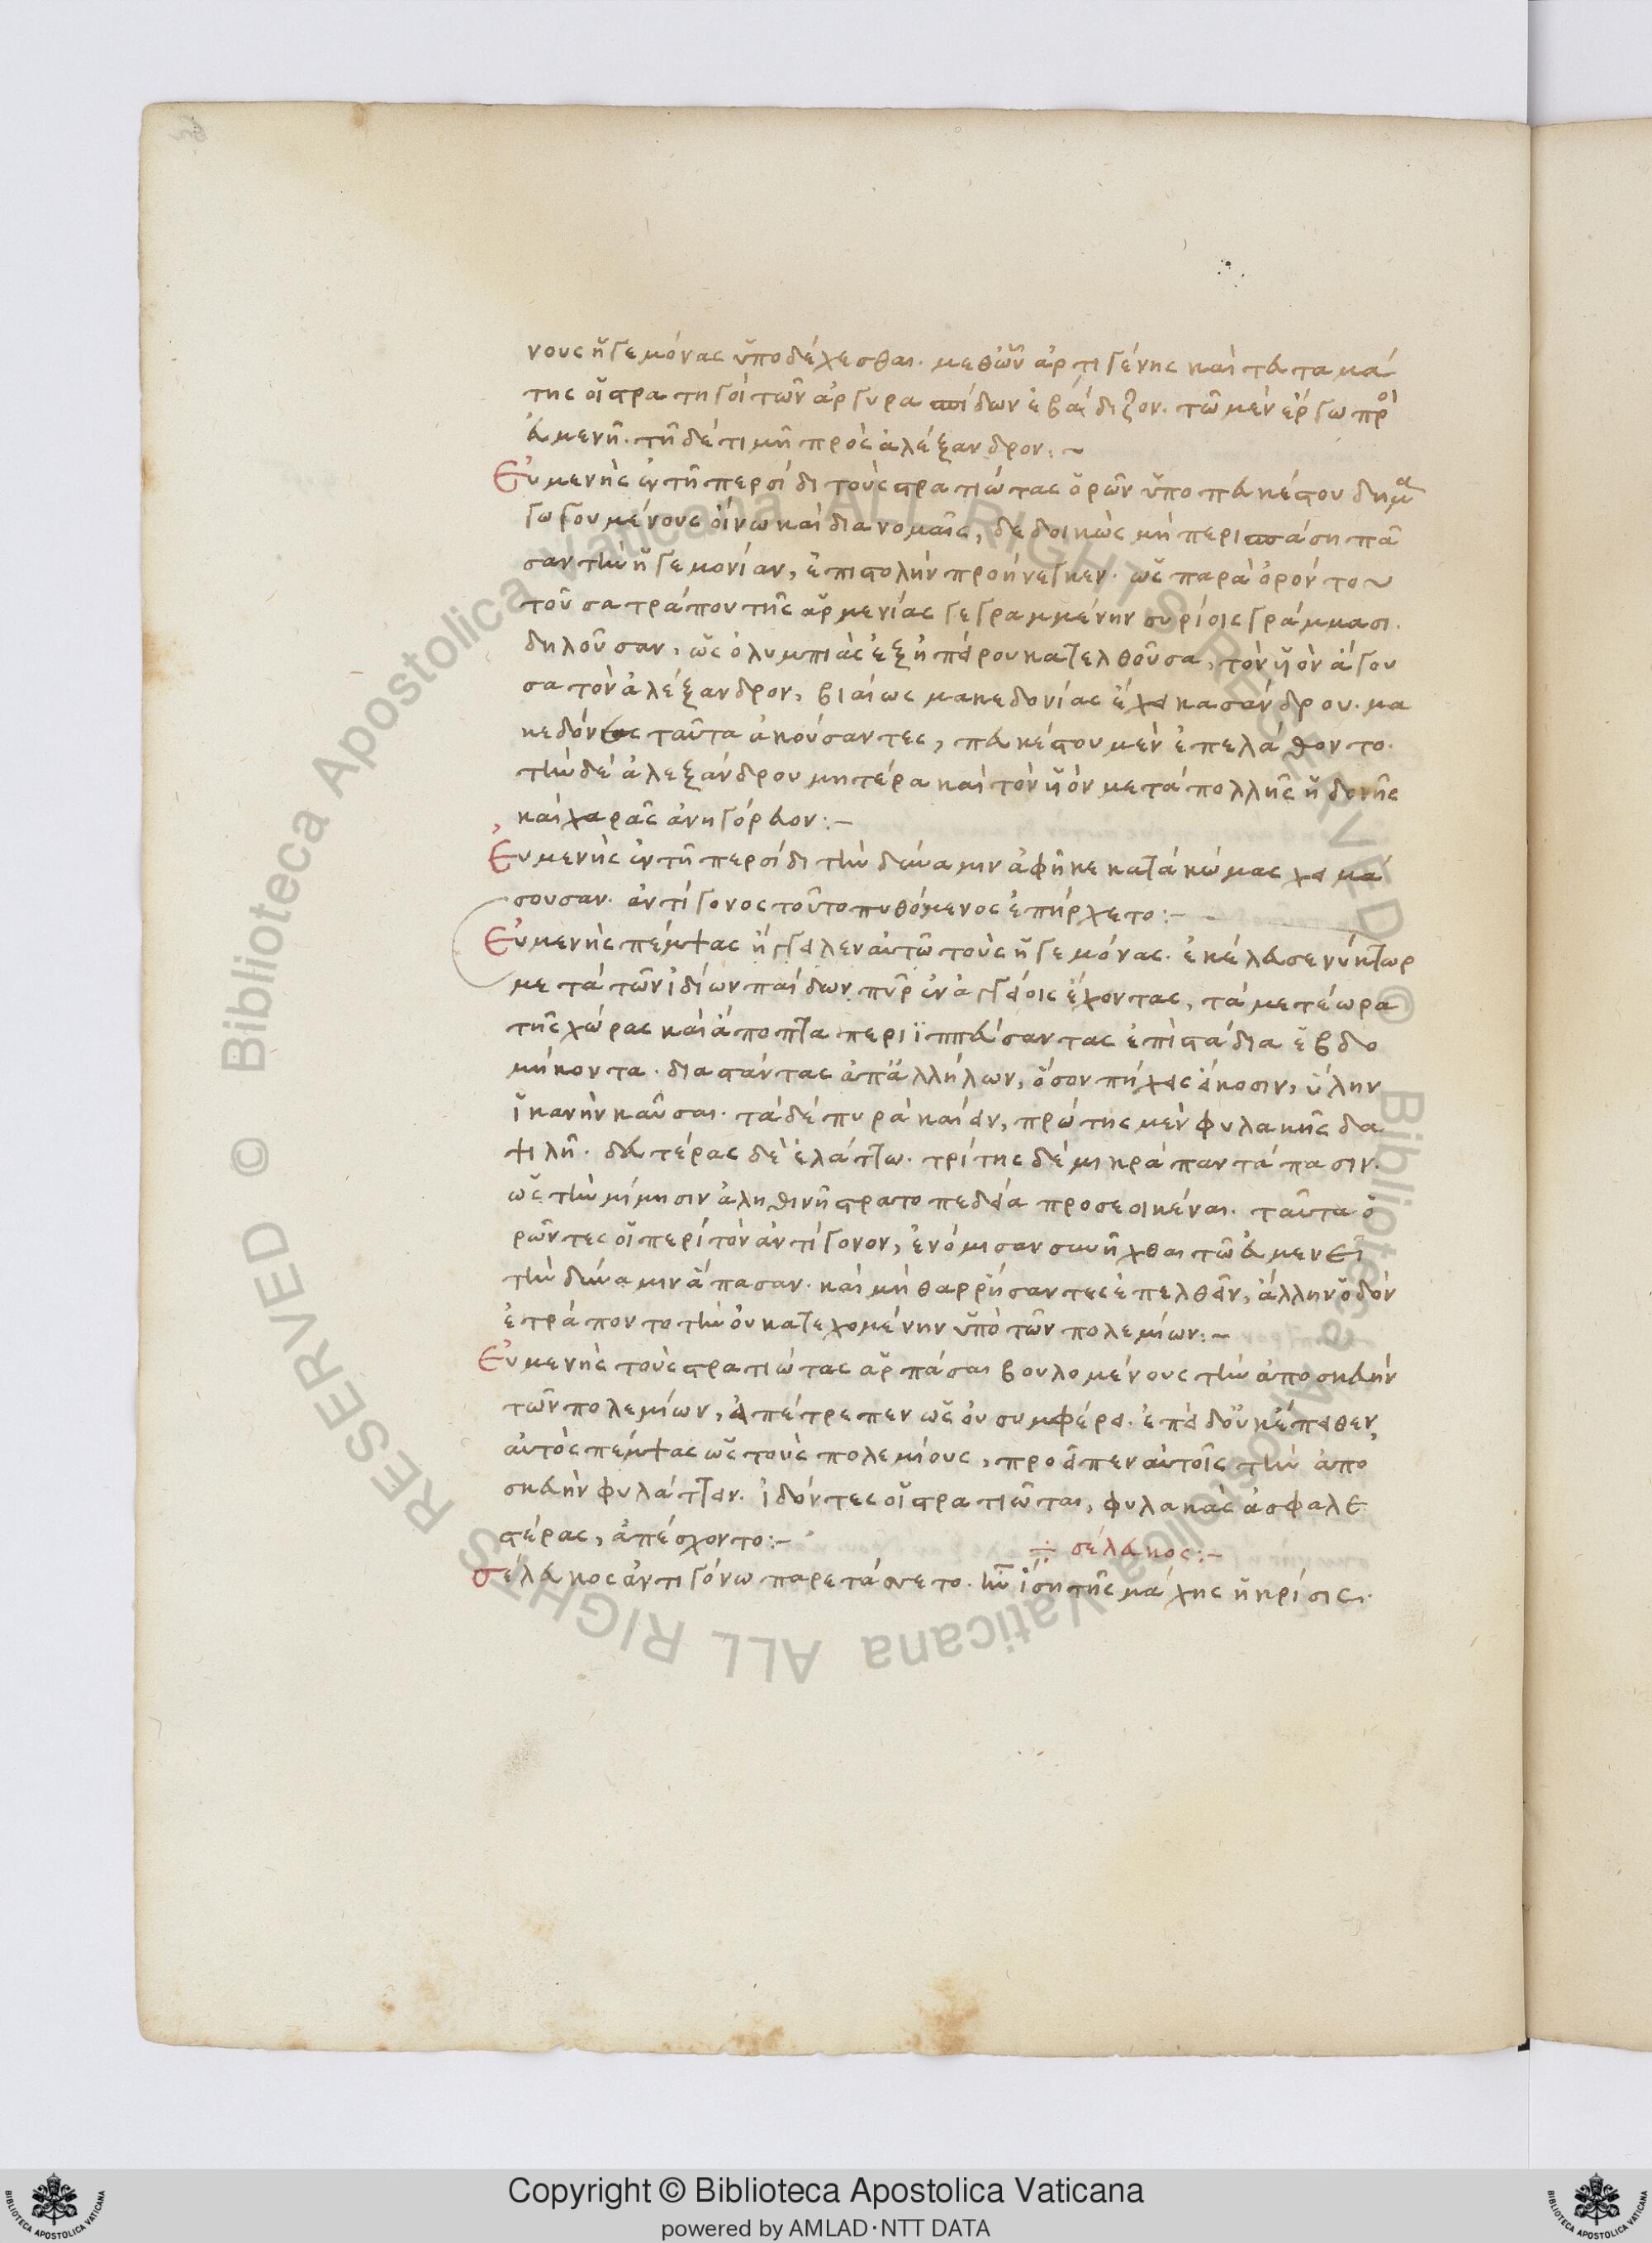 νους ἡγεμόνας ὑποδέχεσθαι. μεθ' ὧν ἀρτιγένης καὶ τευταμά
της οἱ στρατηγοὶ τῶν ἀργυρασπίδων ἐβάδιζον. τῶ μὲν ἔργω πρὸ
εὐμενῆ. τῆ δὲ τιμῆ πρὸς ἀλέξανδρον:~
Εὐμενὴς ἐν τῆ περσίδι τοὺς στρατιώτας ὁρῶν ὑπο πευκέστου δημα
γωγουμένους οἴνω καὶ διανομαῖς, δεδοικὼς μὴ περισπάση πᾶ
σαν τὴν ἡγεμονίαν, ἐπιστολὴν προήνεγκεν. ὡς παρὰ ὀρόντου
τοῦ σατράπου τῆς ἀρμενίας γεγραμμένην συρίοις γράμμασι.
δηλοῦσαν, ὡς ὀλυμπιὰς ἐξ ἠπείρου κατελθοῦσα, τὸν υἱὸν ἄγου
σα τὸν ἀλέξανδρον, βιαίως μακεδονίας ἔχει κασάνδρου. μα
κεδόνες ταῦτα ἀκούσαντες, πευκέστου μὲν ἐπελάθοντο.
τὴν δὲ ἀλεξάνδρου μητέρα καὶ τὸν υἱὸν μετὰ πολλῆς ἡδονῆς
καὶ χαρᾶς ἀνηγόρευον:–
Εὐμενὴς ἐν τῆ περσίδι τὴν δύναμιν ἀφῆκε κατὰ κώμας χειμά
σουσαν. ἀντίγονος τοῦτο πυθόμενος ἐπήρχετο:–
Εὐμενὴς πέμψας ἤγγειλεν αὐτῶ τοὺς ἡγεμόνας. ἐκέλευσε νύκτωρ
μετὰ τῶν ἰδίων παίδων πῦρ ἐν ἀγγείοις ἔχοντας, τὰ μετέωρα
τῆς χώρας καὶ ἄποπτα περιϊππεύσαντας ἐπὶ στάδια ἑβδο
μήκοντα. διαστάντας ἀπ' ἀλλήλων, ὅσον πήχεις εἴκοσιν, ὕλην
ἱκανὴν καῦσαι. τὰ δὲ πυρὰ καίειν, πρώτης μὲν φυλακῆς δα
ψιλῆ. δευτέρας δὲ ἐλάττω. τρίτης δὲ μικρὰ παντάπασιν.
ὡς τὴν μίμησιν ἀληθινῆ στρατοπεδεία προσεοικέναι. ταῦτα ὁ
ρῶντες οἱ περὶ τὸν ἀντίγονον, ἐνόμισαν συνῆχθαι τῶ εὐμενεῖ
τὴν δύναμιν ἅπασαν. καὶ μὴ θαρρήσαντες ἐπελθεῖν, ἄλλην ὁδὸν
ἐτράποντο τὴν οὐ κατεχομένην ὑπὸ τῶν πολεμίων:–
Εὐμενὴς τοὺς στρατιώτας ἁρπάσαι βουλομένους τὴν ἀποσκευὴν
τῶν πολεμίων, ἀπέτρεπεν ὡς οὐ συμφέρει. ἐπεὶ δ' οὐκ ἔπειθεν,
αὐτὸς πέμψας ὡς τοὺς πολεμίους, προεῖπεν αὐτοῖς τὴν ἀπο
σκευὴν φυλάττειν. ἰδόντες οἱ στρατιῶται, φυλακὰς ἀσφαλε
στέρας, ἀπέσχοντο:–
÷ σέλευκος:–
Σέλευκος ἀντιγόνω παρετάσσετο. ἦν ἴση τῆς μάχης ἡ κρίσις.